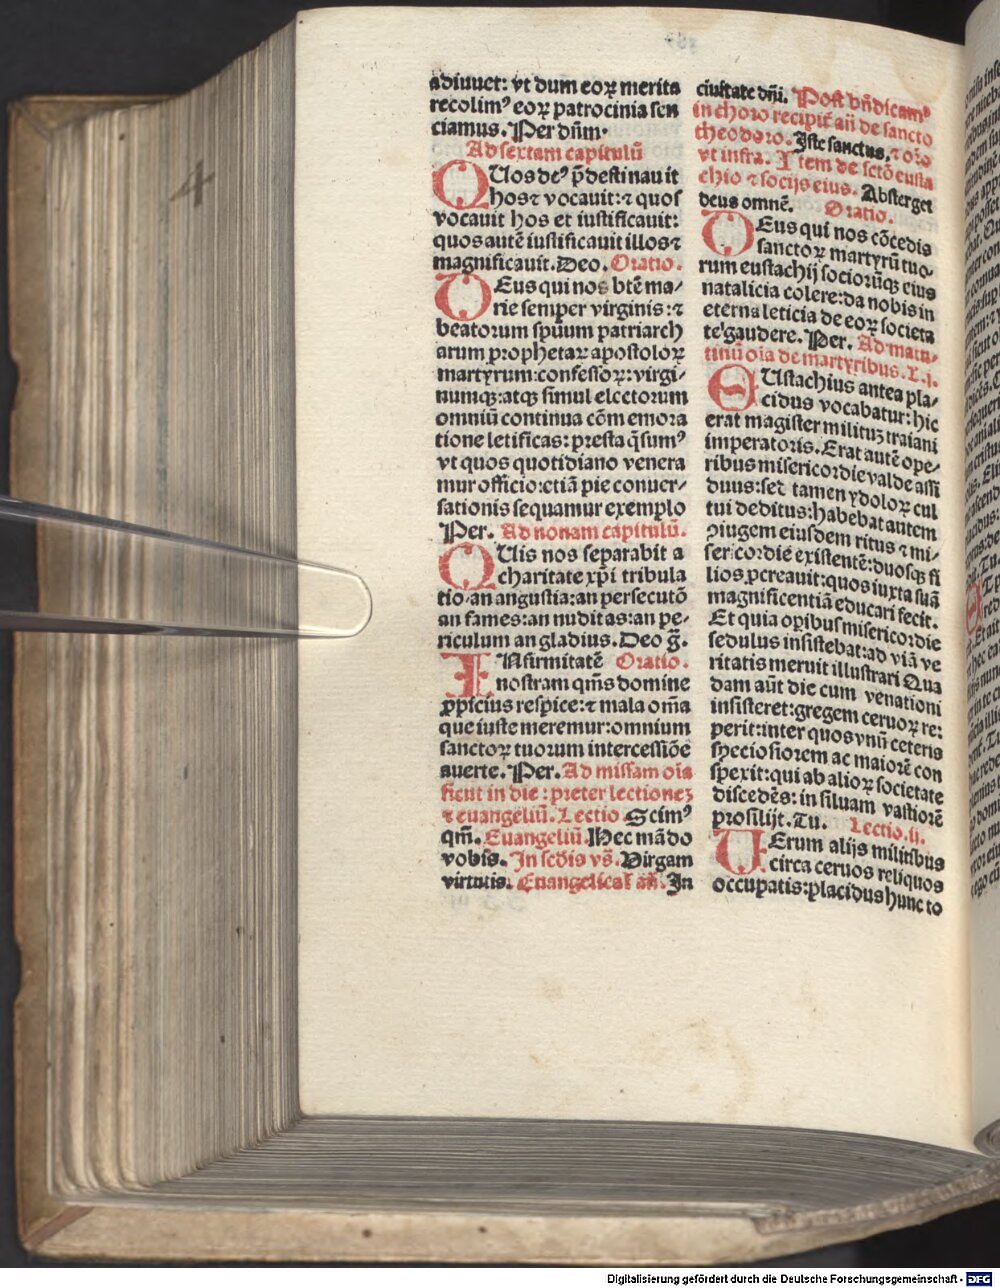 adiuuet: vt dum eoꝝ merita
recolimꝰ eoꝝ patrocinia sen
ciamus. Per dñm.
Ad sextam capitulũ
QUos deꝰ p̃destinauit
hos ⁊ vocauit: ⁊ quos
vocauit hos et iustificauit:
quos autẽ iustificauit illos ⁊
magnificauit. Deo. Oratio.
DEus qui nos btẽ ma/
rie semper virginis: ⁊
beatorum spũum patriarch
arum prophetaꝝ apostoloꝝ
martyrum: confessoꝝ: virgi/
numqꝫ: atqꝫ simul elcetorum
omniũ continua cõm emora
tione letificas: presta q̃sumꝰ
vt quos quotidiano venera
mur officio: etiã pie conuer/
sationis sequamur exemplo
Per. Ad nonam capitulũ.
QUis nos separabit a
charitate xp̃i tribula
tio: an angustia: an persecutõ
an fames: an nuditas: an pe/
riculum an gladius. Deo g̃.
INfirmitatẽ Oratio.
nostram qm̃s domine
ꝓpicius respice: ⁊ mala om̃a
que iuste meremur: omnium
sanctoꝝ tuorum intercessiõe
auerte. Per. Ad missam oĩa
fient in die: preter lectionez
⁊ euangeliũ. Lectio Scimꝰ
qm̃. Euangeliũ. Hec mãdo
vobis. In scd̃is vs̃. Virgam
virtutis. Euangelical' añ. In
ciuitate dñi. Post bñdicamꝰ
in choro recipit̃ añ de sancto
theodoro. Iste sanctus. ⁊ oĩo
vt infra. Item de sctõ eusta
chio ⁊ socijs eius. Absterget
deus omnẽ. Oratio.
DEus qui nos cõcedis
sanctoꝝ martyrũ tuo-
rum eustachij sociorũqꝫ eius
natalicia colere: da nobis in
eterna leticia de eoꝝ societa
te gaudere. Per. Ad matu-
tinũ oĩa de martyribus. L. i.
EUstachius antea pla/
cidus vocabatur: hic
erat magister militũ traiani
imperatoris. Erat autẽ ope/
ribus misericordie valde assi
duus: sed tamen ydoloꝝ cul
tui deditus: habebat autem
ꝯiugem eiusdem ritus ⁊ mi/
sericordie existentẽ: duosqꝫ fi
lios ꝓcreauit: quos iuxta suã
magnificentiã educari fecit.
Et quia opibus misericordie
sedulus insistebat: ad viã ve
ritatis meruit illustrari Qua
dam aũt die cum venationi
insisteret: gregem ceruoꝝ re:
perit: inter quos vnũ ceteris
speciosiorem ac maiorẽ con
spexit: qui ab alioꝝ societate
discedẽs: in siluam vastiorẽ
prosilijt. Tu. Lectio. ii.
UErum alijs militibus
circa ceruos reliquos
occupatis: placidus hunc to
4
Digitalisierung gefördert durch die Deutsche Forschungsgemeinschaft - DFG